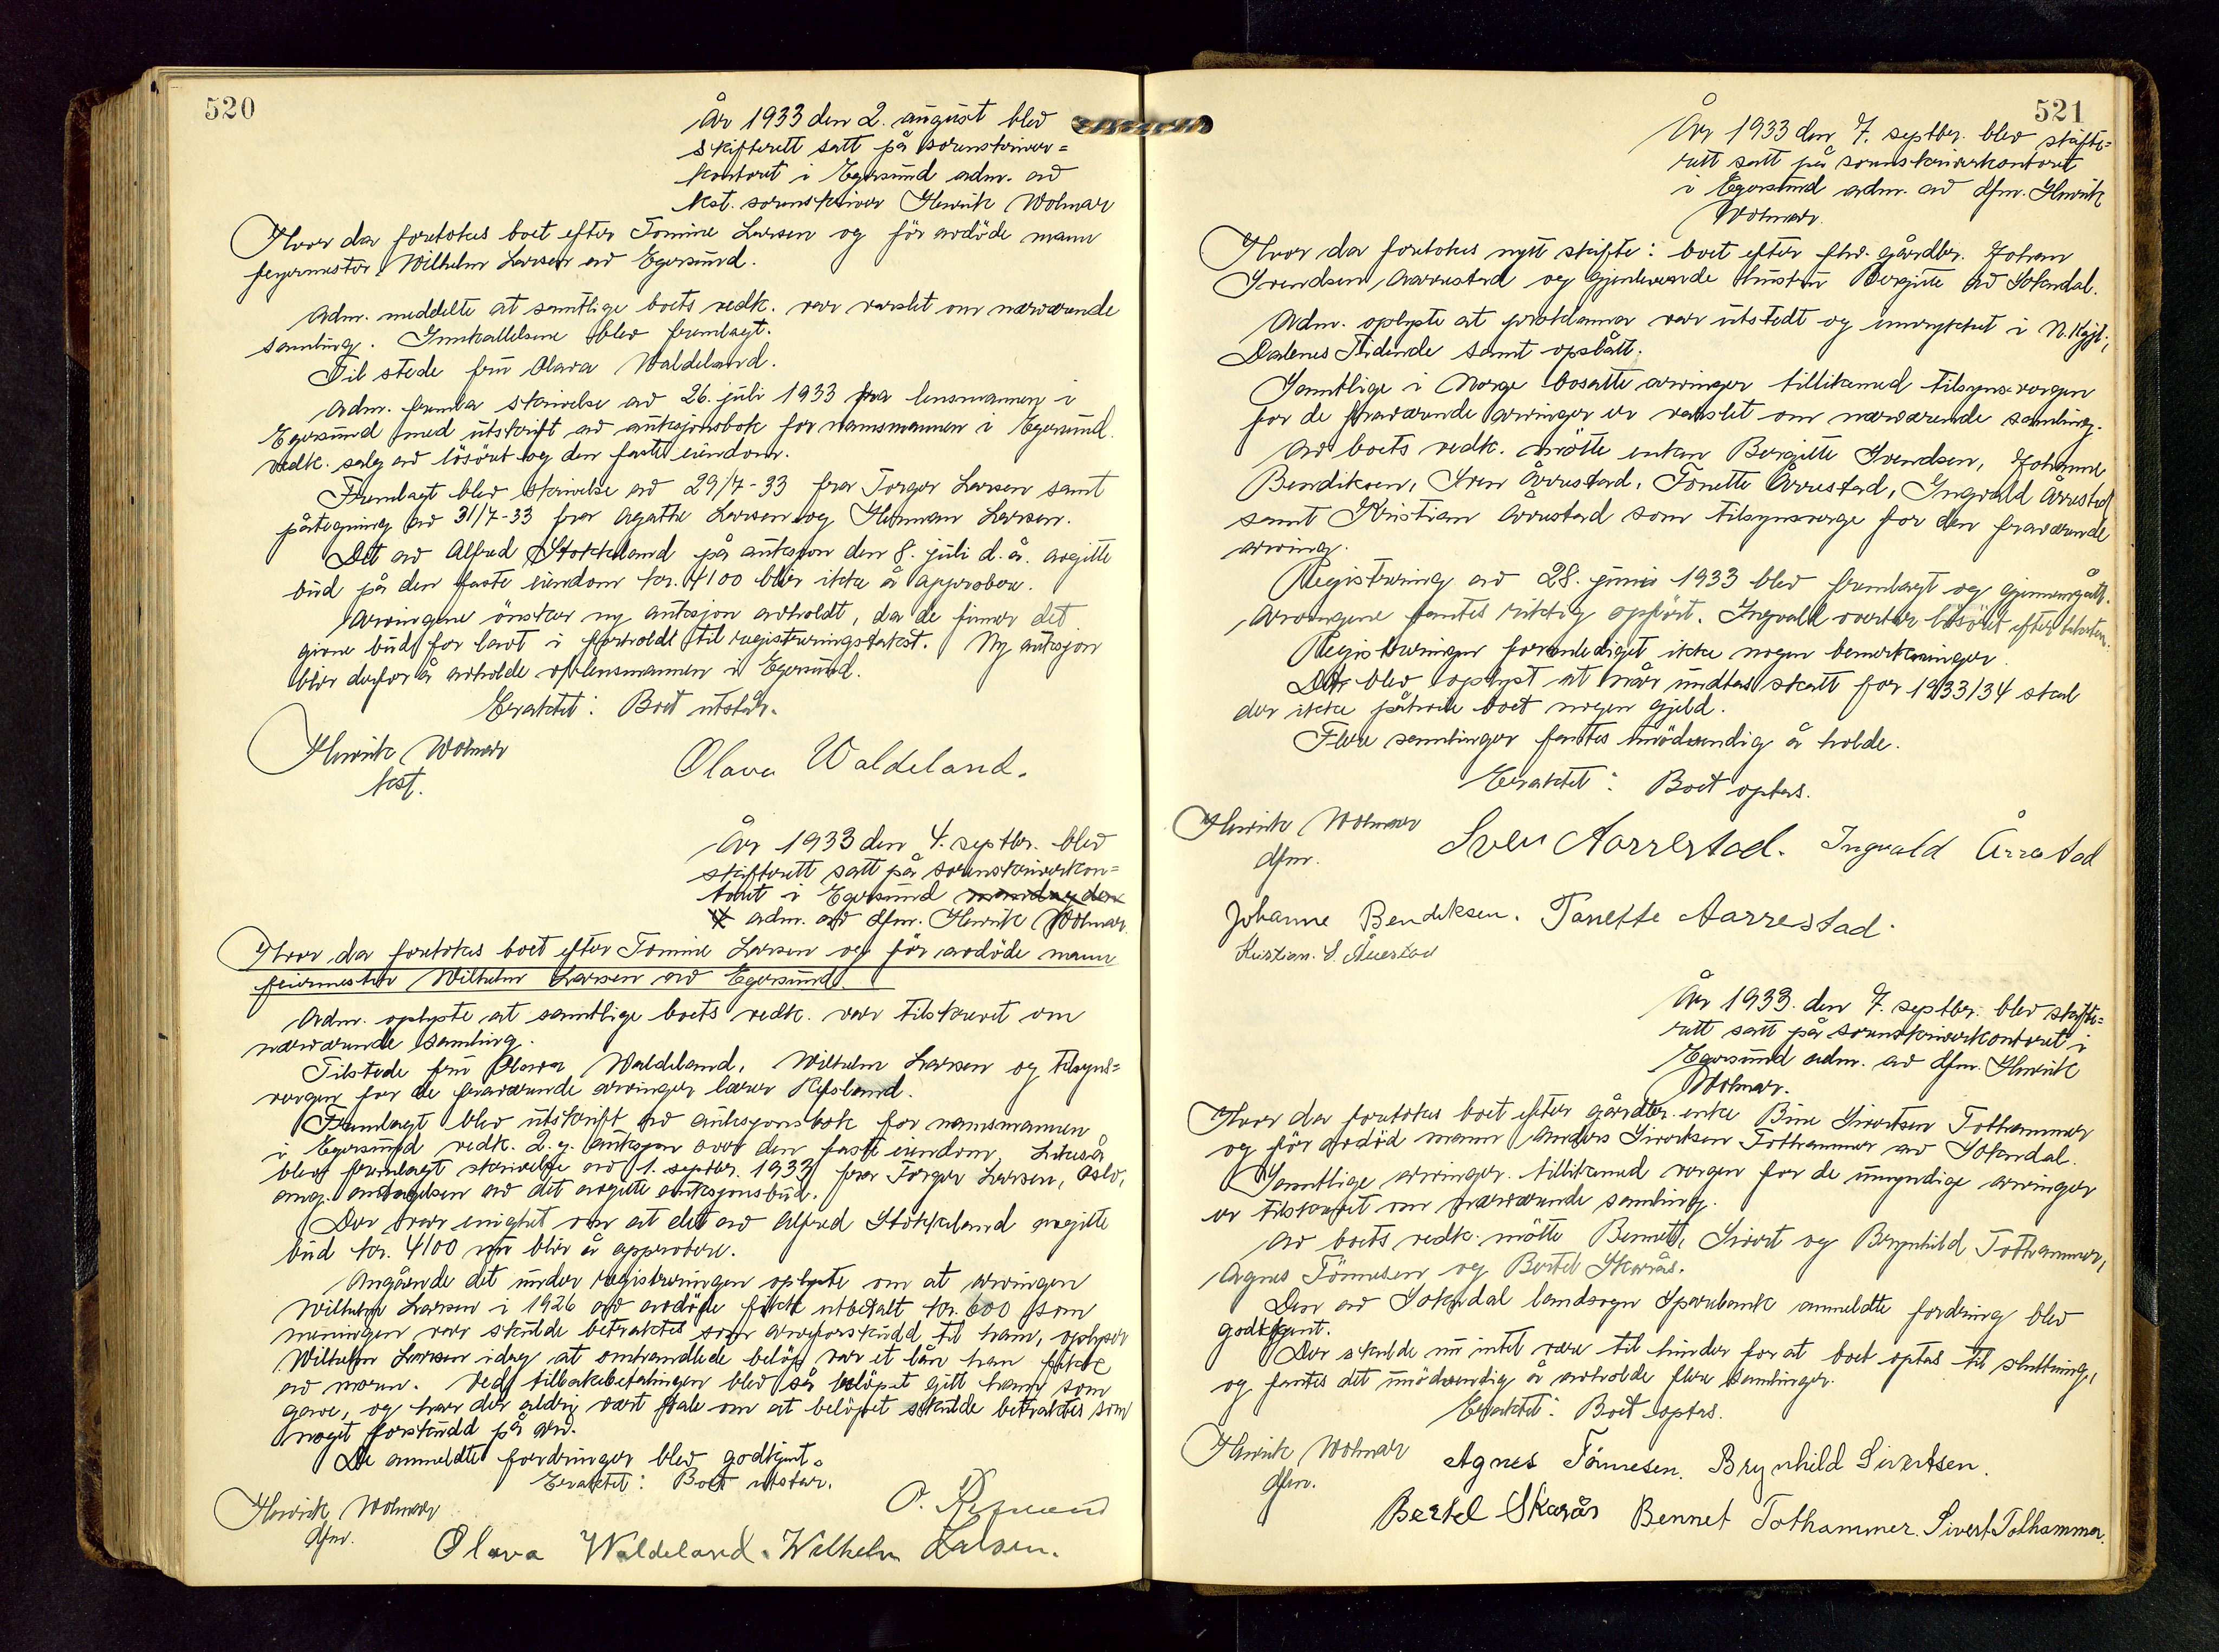 520
År 1933 den 2. august blev
skifterett satt på sorenskriver=
kontoret i Egersund adm. av
kst. sorenskriver Henrik Wolmar
Hvor da foretokes boet efter Tomine Larsen og før avdöde mann
feyermester Wilhelm Larsen av Egersund.
Adm. meddelte at samtlige boets vedk. var varslet om nærværende
samling. Innkallelsene blev fremlagt.
Til stede fru Olava Waldeland.
Adm. fremla skrivelse av 26. juli 1933 fra lensmannen i
Egersund med utskrift av auksjonsbok for namsmannen i Egersund
vedk. salg av lösöret og den faste eiendom.
Fremlagt blev skrivelse av 29/7-33 fra Torger Larsen samt
påtegning av 31/7-33 fra Agathe Larsen og Herman Larsen.
Det av Alfred Stokkeland på auksjon den 8. juli d.å. avgitte
bud på den faste eiendom kr. 4100 blir ikke å approbere.
Arvingene önsker ny auksjon avholdt, da de finner det
givne bud for lavt i forhold til registreringstakst. Ny auksjon
blir derfor å avholde av lensmannen i Egersund.
Eraktet: Boet utstår.
Henrik Wolmar
kst.
Olava Waldeland.
År 1933 den 4. septbr. blev
skifterett satt på sorenskriverkon=
toret i Egersund mandag den
4 adm. av dfm. Henrik Wolmar.
Hvor da foretokes boet efter Tomine Larsen og før avdöde mann
feiermester Wilhelm Larsen av Egersund.
Adm. oplyste at samtlige boets vedk. var tilskrevet om
nærværende samling.
Tilstede fru Olava Waldeland, Wilhelm Larsen og tilsyns=
vergen for de fraværende arvinger lærer Refsland.
Fremlagt blev utskrift av auksjonsbok for namsmannen
i Egersund vedk. 2.g. auksjon over den faste eiendom, Likeså
blev fremlagt skrivelse av 1. septbr. 1933 fra Torger Larsen, Oslo,
ang. antagelsen av det avgitte auksjonsbud.
Der var enighet om at det av Alfred Stokkeland avgitte
bud kr. 4100 nu blir å approbere.
Angående det under registreringen oplyste om at arvingen
Wilhelm Larsen i 1926 av avdöde fikk utbetalt kr. 600 som
meningen var skulde betraktes som arveforskudd til ham, oplyser
Wilhelm Larsen idag at omhandlede belöp var et lån han fikk
av moren. Ved tilbakebetalingen blev så belöpet gitt ham som
gave, og har der aldrig vært tale om at belöpet skulde betraktes som
noget forskudd på arv.
De anmeldte fordringer blev godkjent.
Eraktet: Boet utstår.
Henrik Wolmar
dfm.
O. Refsland
Olava Waldeland. Wilhelm Larsen.
521
År 1933 den 7. septbr. blev skifte=
rett satt på sorenskriverkontoret
i Egersund adm. av dfm. Henrik
Wolmar.
Hvor da foretokes nytt skifte: boet efter fhv. gårdbr. Johan
Svendsen Aarrestad og gjenlevende hustru Bergitte av Sokndal.
Adm. oplyste at proklama var utstedt og innrykket i N. Kgjt.,
Dalenes Tidende samt opslått.
Samtlige i Norge bosatte arvinger tillikemed tilsynsvergen
for de fraværende arvinger er varslet om nærværende samling.
Av boets vedk. mötte enken Bergitte Svendsen, Johanne
Bendiksen, Sven Årrestad, Tonette Årrestad, Ingvald Årrestad
samt Kristian Årrestad som tilsynsverge for den fraværende
arving.
Registrering av 28. juni 1933 blev fremlagt og gjennemgått.
Arvingene fantes riktig opfört. Ingvald overtar lösöret efter taksten.
Registreringen foranlediget ikke nogen bemerkninger.
Der blev oplyst at når undtas skatt for 1933/34 skal
der ikke påhvile boet nogen gjeld.
Flere samlinger fantes unödvendig å holde.
Eraktet: Boet optas.
Henrik Wolmar
dfm.
Sven Aarrestad. Ingvald Årrestad
Johanne Bendiksen. Tonette Aarrestad.
Kristian. S. Åuestad
År 1933 den 7. septbr. blev skifte=
rett satt på sorenskriverkontoret i
Egersund adm. av dfm. Henrik
Wolmar.
Hvor da foretokes boet efter gårdbr. enke Bine Sivertsen Tothammer
og för avdöd mann Anders Sivertsen Tothammer av Sokndal.
Samtlige arvinger tillikemed vergen for de umyndige arvinger
er tilskrevet om nærværende samling.
Av boets vedk. mötte Bennet, Sivert og Brynhild Tothammer,
Agnes Tönnesen og Bertel Skarås.
Den av Sokndal landsogn Sparebank anmeldte fordring blev
godkjent.
Der skulde nu intet være til hinder for at boet optas til slutning,
og fantes det unödvendig å avholde flere samlinger.
Eraktet: Boet optas.
Henrik Wolmar
dfm.
Agnes Tönnesen. Brynhild Sivertsen.
Bertel Skarås Bennet Tothammer. Sivert Tothammer.